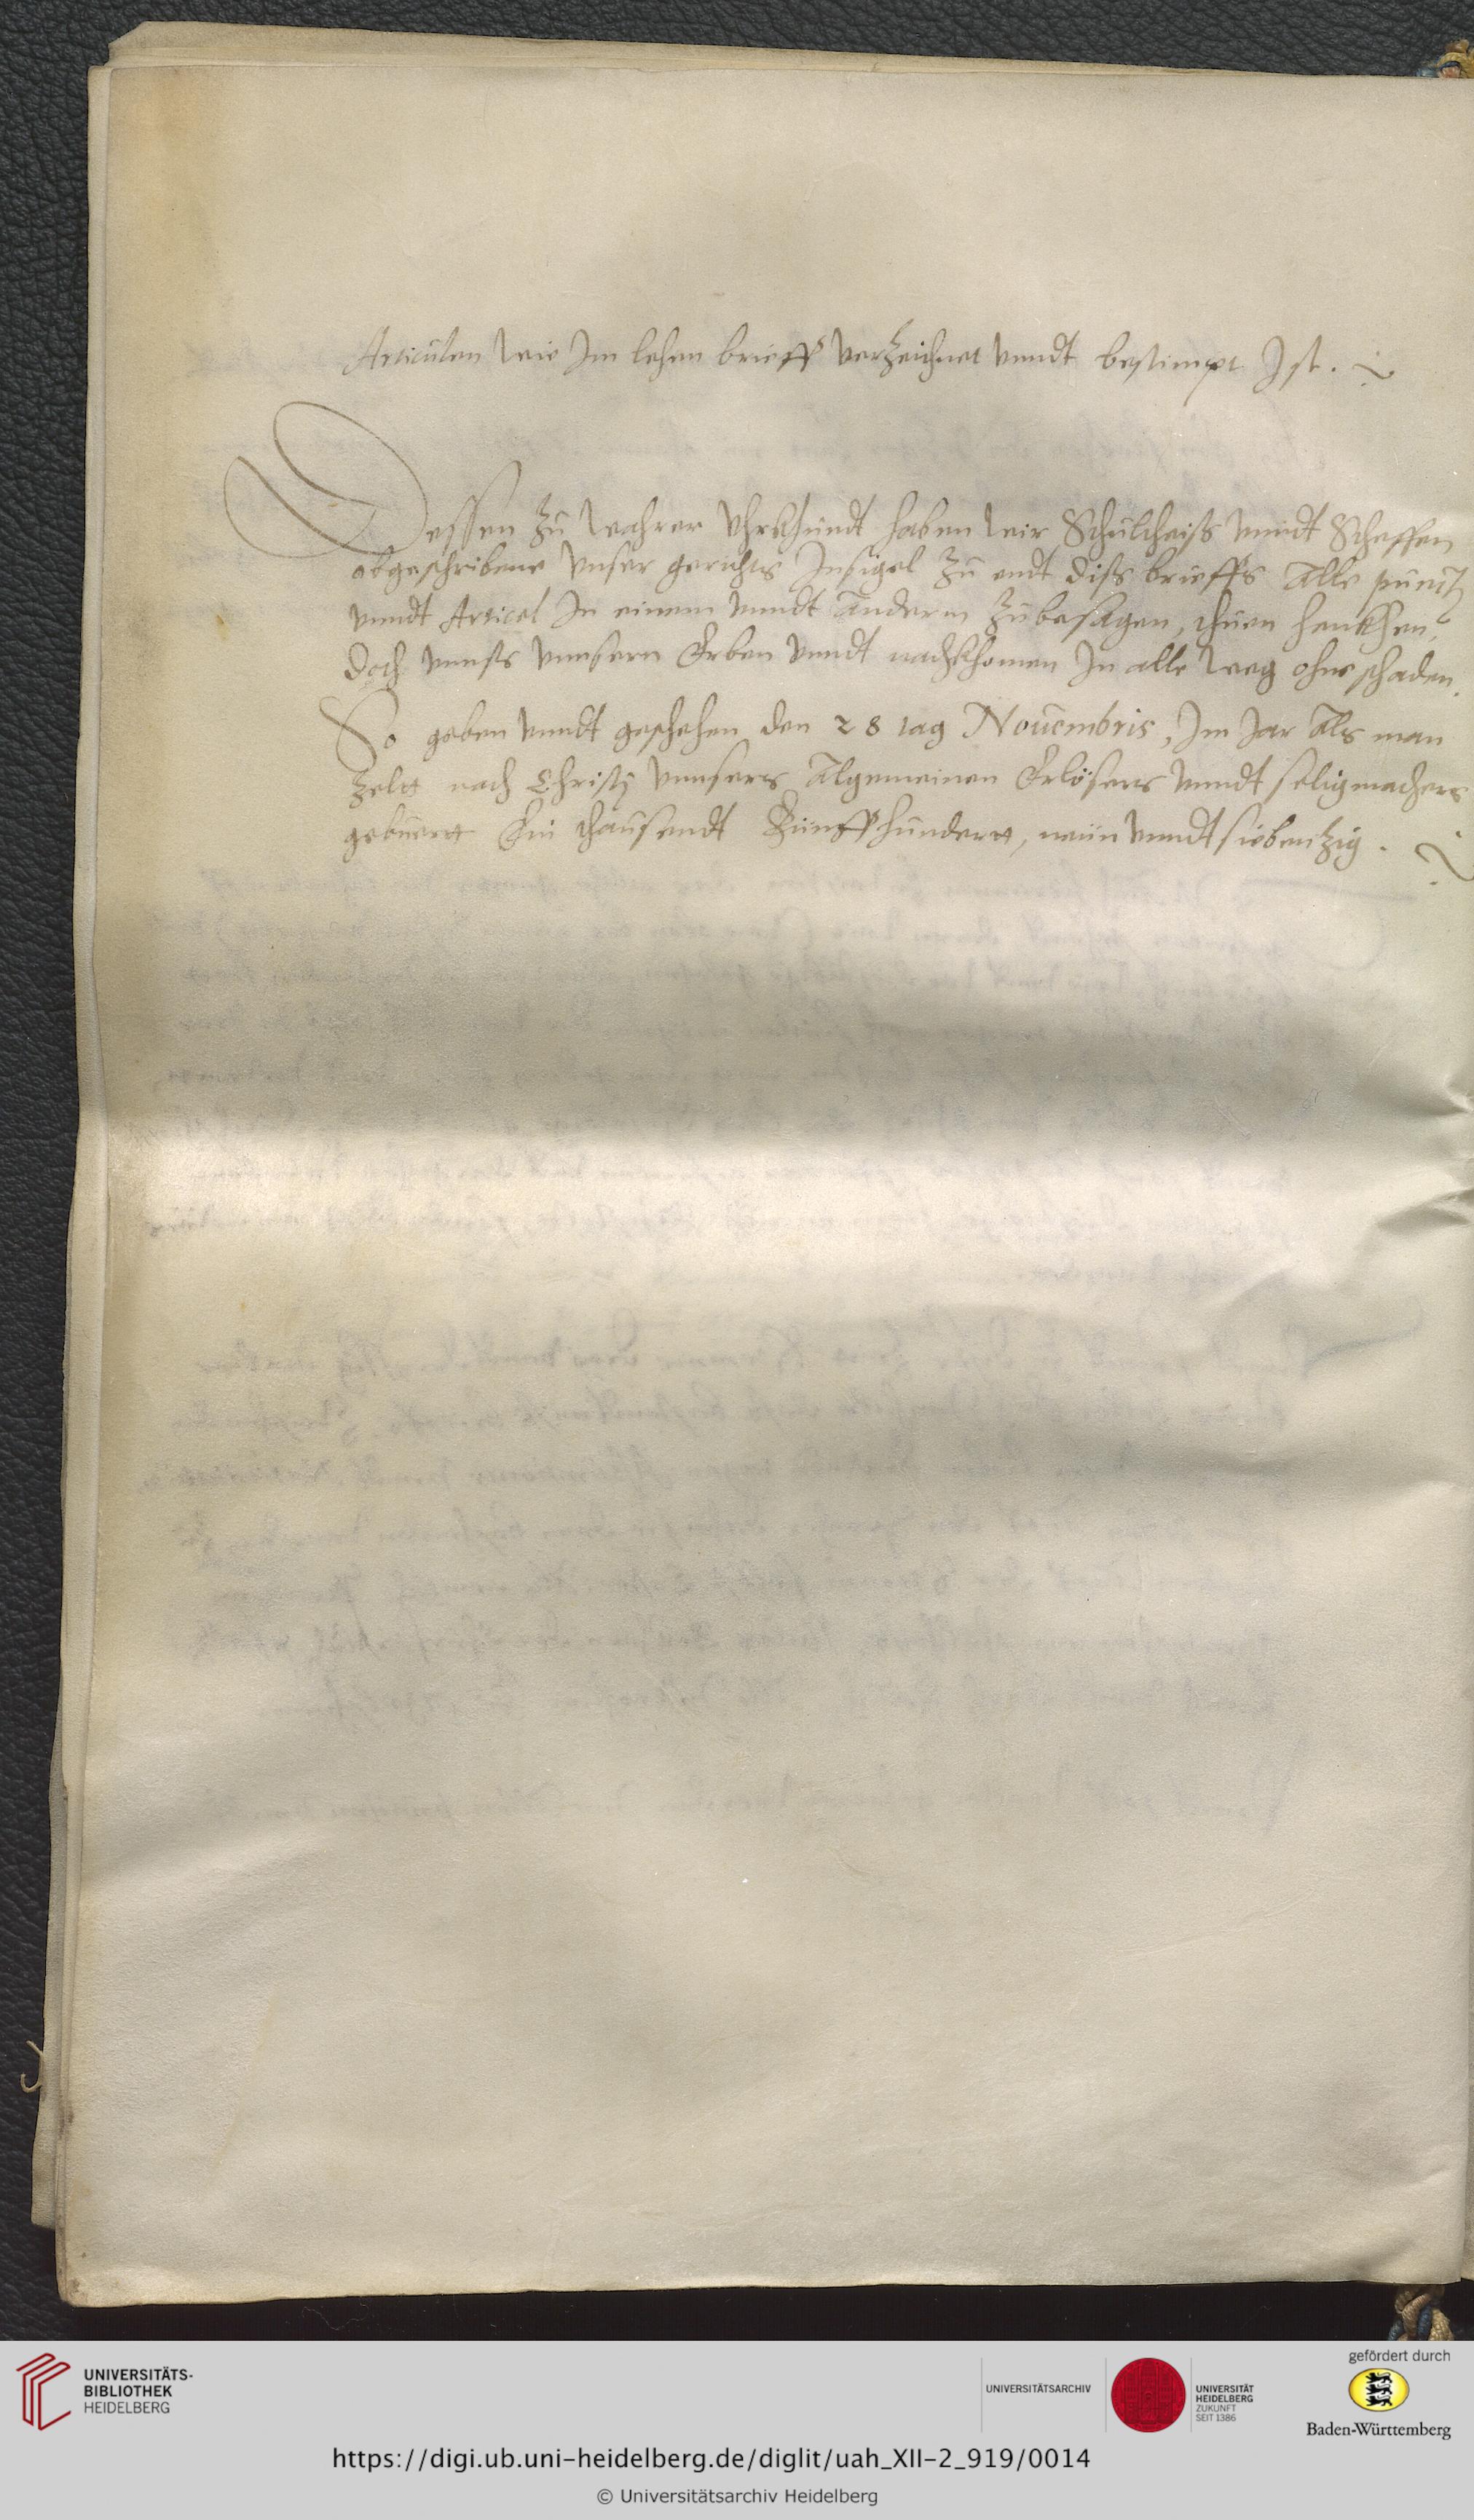 Articulen wie Im lehen brieff verzeichnet vnndt bestimpt Ist.
Dessen zu wahrer Vhrkhundt haben wir Schultheiss vnndt Scheffen
obgeschribene vnser gerichts Insigel zu endt diss brieffs Alle punct
vnndt Articel In einem vnndt Anderm zubesagen, thuen henckhen,
doch vnnss vnnsern Erben vnndt nachkhomen In alle weg ohne schaden.
So geben vnndt geschehen den 28 tag Nouembris, Im Jar Als man
Zelt nach Christj vnnsers Algemeinen Erlösers vnndt seligmachers
gebuertt Ein thausendt Fünffhundertt, neün vnndt siebentzig.
UNIVERSITÄTS-
BIBLIOTHEK
HEIDELBERG
UNIVERSITÄTSARCHIV
UNIVERSITÄT
HEIDELBERG
ZUKUNFT
SEIT 1386
gefördert durch
Baden-Württemberg
https://digi.ub.uni-heidelberg.de/diglit/uah_XII-2_919/0014
© Universitätsarchiv Heidelberg